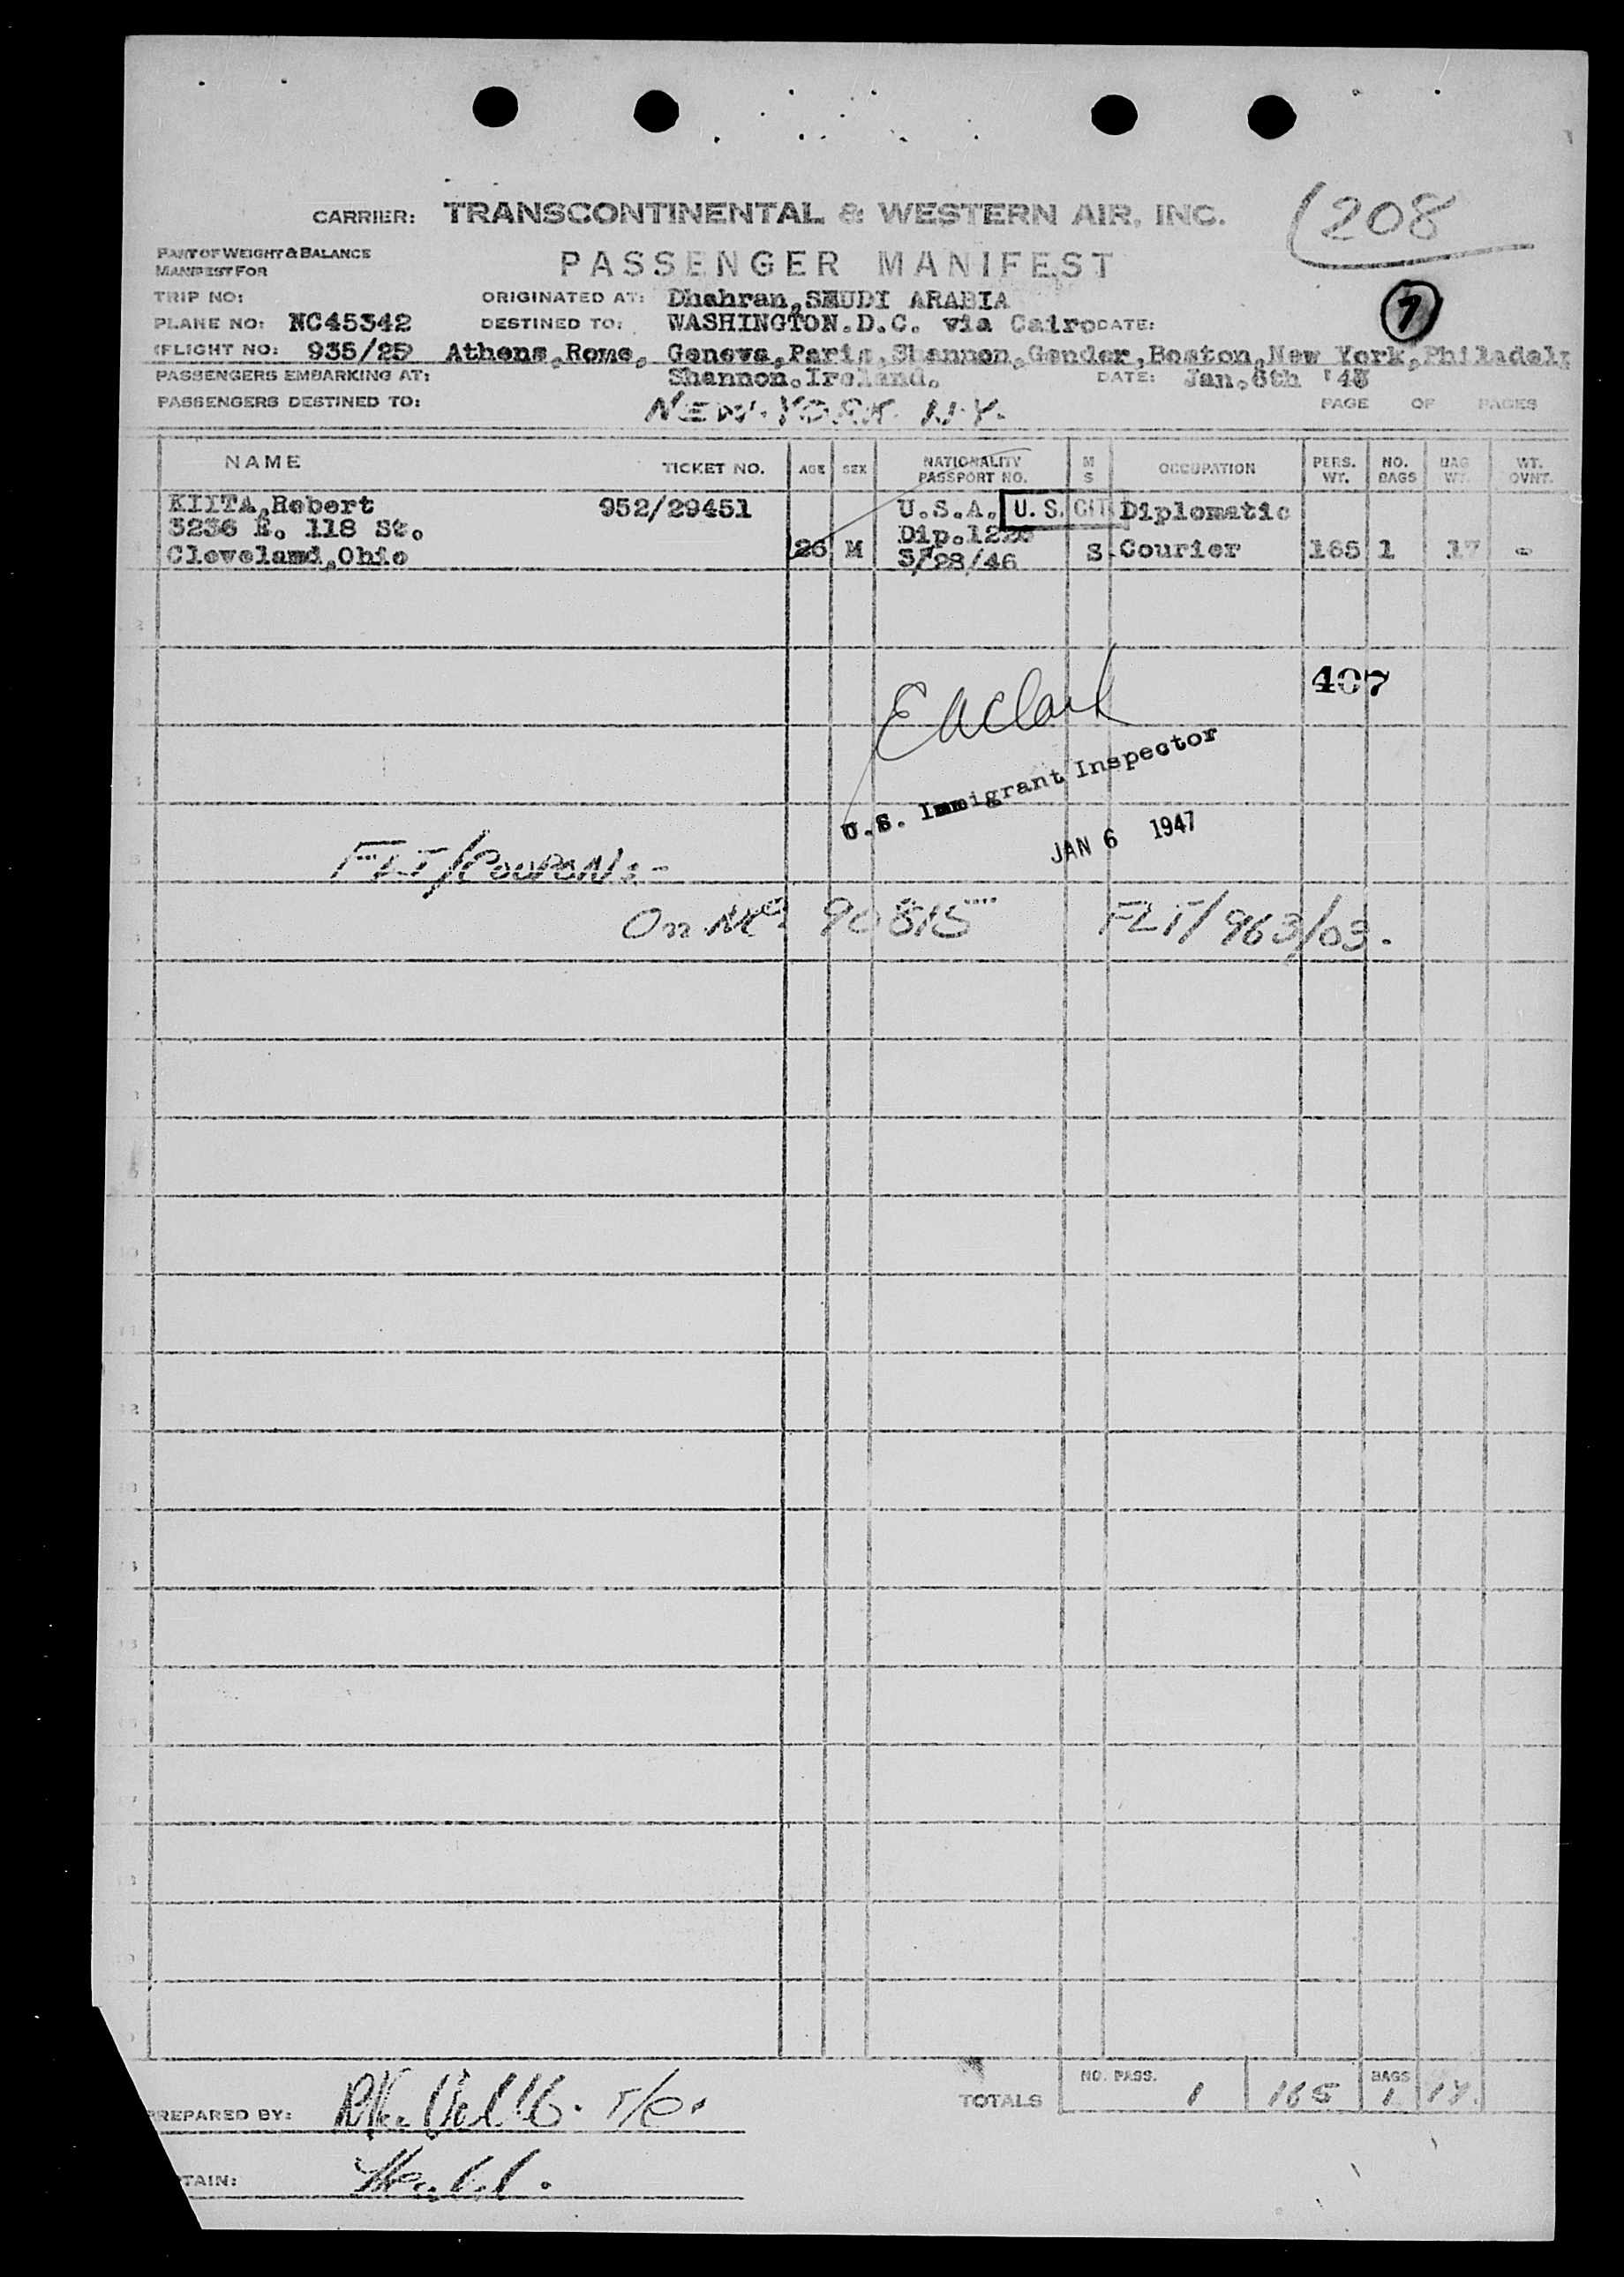 208
CARRIER: TRANSCONTINENTAL & WESTERN AIR, INC.
PART OF WEIGHT & BALANCE
MANIFEST FOR
PASSENGER MANIFEST
7
TRIP NO: ORIGINATED AT: Dhahran, SAUDI ARABIA
PLANE NO: NC45342 DESTINED TO: WASHINGTON.D.C. via Cairo DATE:
(FLIGHT NO: 935/25 Athens,Rome, Geneva,Paris,Shannon,Gander,Boston,New York,Philadelp
PASSENGERS EMBARKING AT: Shannon.Ireland. DATE: Jan.6th
PASSENGERS DESTINED TO: NEW YORK N.Y. PAGE OF PAGES
NAME TICKET NO. AGE SEX NATIONALITY PASSPORT NO. M S OCCUPATION PERS. WT. NO. BAGS BAG WT. WT. OVNT.
KIITA,Robert 952/29451 U.S.A. U.S. CIT Diplomatic
3236 E. 118 St. Dip.
Cleveland,Ohio 26 M 3/28/46 S Courier 165 1 17 -
407
E A Clark
U.S. Immigrant Inspector
JAN 6 1947
FLT/COUPON:-
On NC 90815 FLT/963/03.
TOTALS NO. PASS. 1 165 BAGS 1 17.
PREPARED BY: T/O.
TAIN: